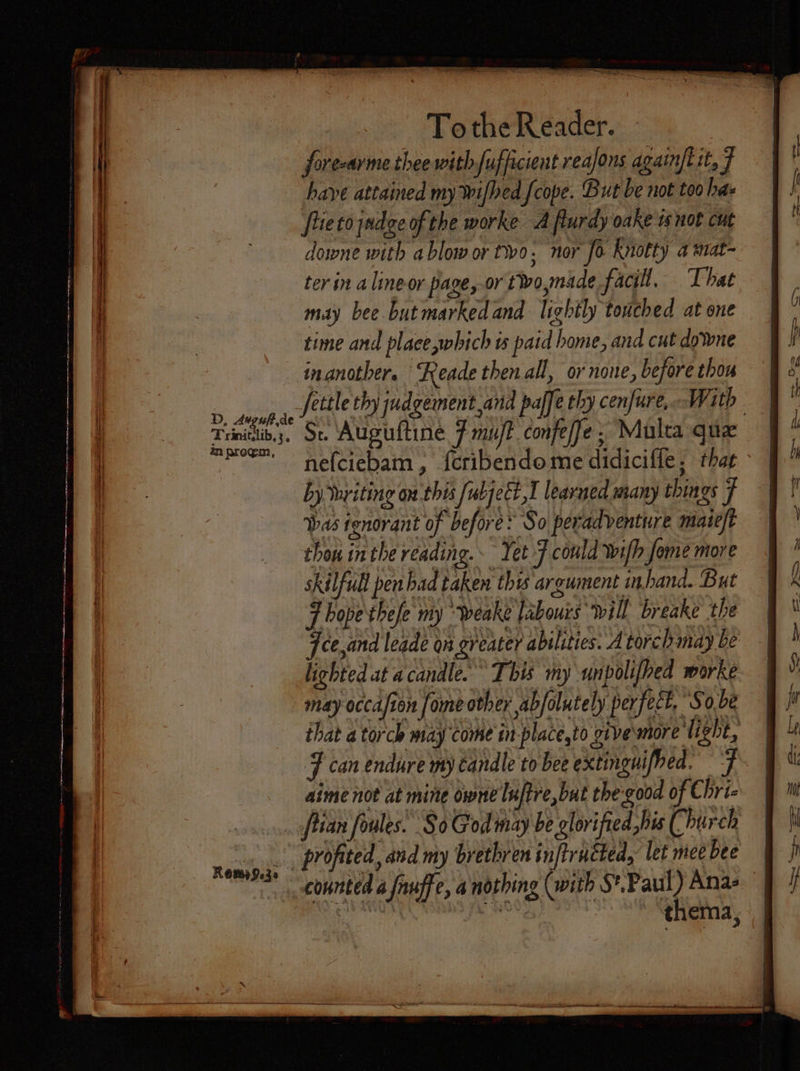 To the Reader.
fore-arme thee with ſufficient reaſons againſt it, I
have attained my wiſhed ſcope. But be not too ha-
ſtie to judge of the worke A ſturdy oake is not cut
downe with a blow or two; nor ſo knotty a mat-
ter in a line or page, or two, made facill. That
may bee but marked and lightly touched at one
time and place, which is paid home, and cut downe
in another. Reade then all, or none, before thou
ſettle thy judgement, and paſſe thy cenſure. With
D. Auguſt. de
Trinit. lib. 3.
in proœm.
St. Auguſtine I muſt confeſſe; Multa quæ
neſciebam, ſcribendo me didiciſſe; that
by writing on this ſubject, I learned many things I
was ignorant of before: So peradventure maieſt
thou in the reading. Yet I could wiſh ſome more
skilfull pen had taken this argument in hand. But
I hope theſe my weake labours will breake the
Ice, and leade on greater abilities. A torch may be
lighted at a candle. This my unpoliſhed worke
may occaſion ſome other abſolutely perfect. So be
that a torch may come in place, to give more light,
I can endure my candle to bee extinguiſhed. I
aime not at mine owne luſtre, but the good of Chri-
ſtian ſoules. So God may be glorified, his Church
profited, and my brethren inſtructed, let mee bee
Rom. 9. 3.
counted a ſnuffe, a nothing (with St. Paul) Ana-
thema,